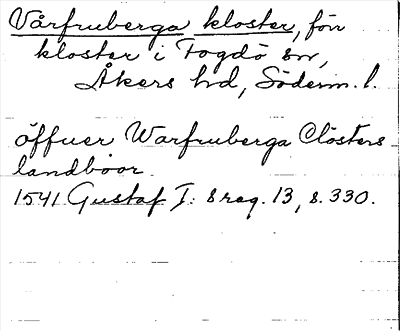 Vårfruberga kloster, förr
kloster i Fogdö sn,
Åkers hd, Söderm. l.
öffuer Warfruberga Clösters
landboor
1541 Gustaf I: s reg. 13, s. 330.